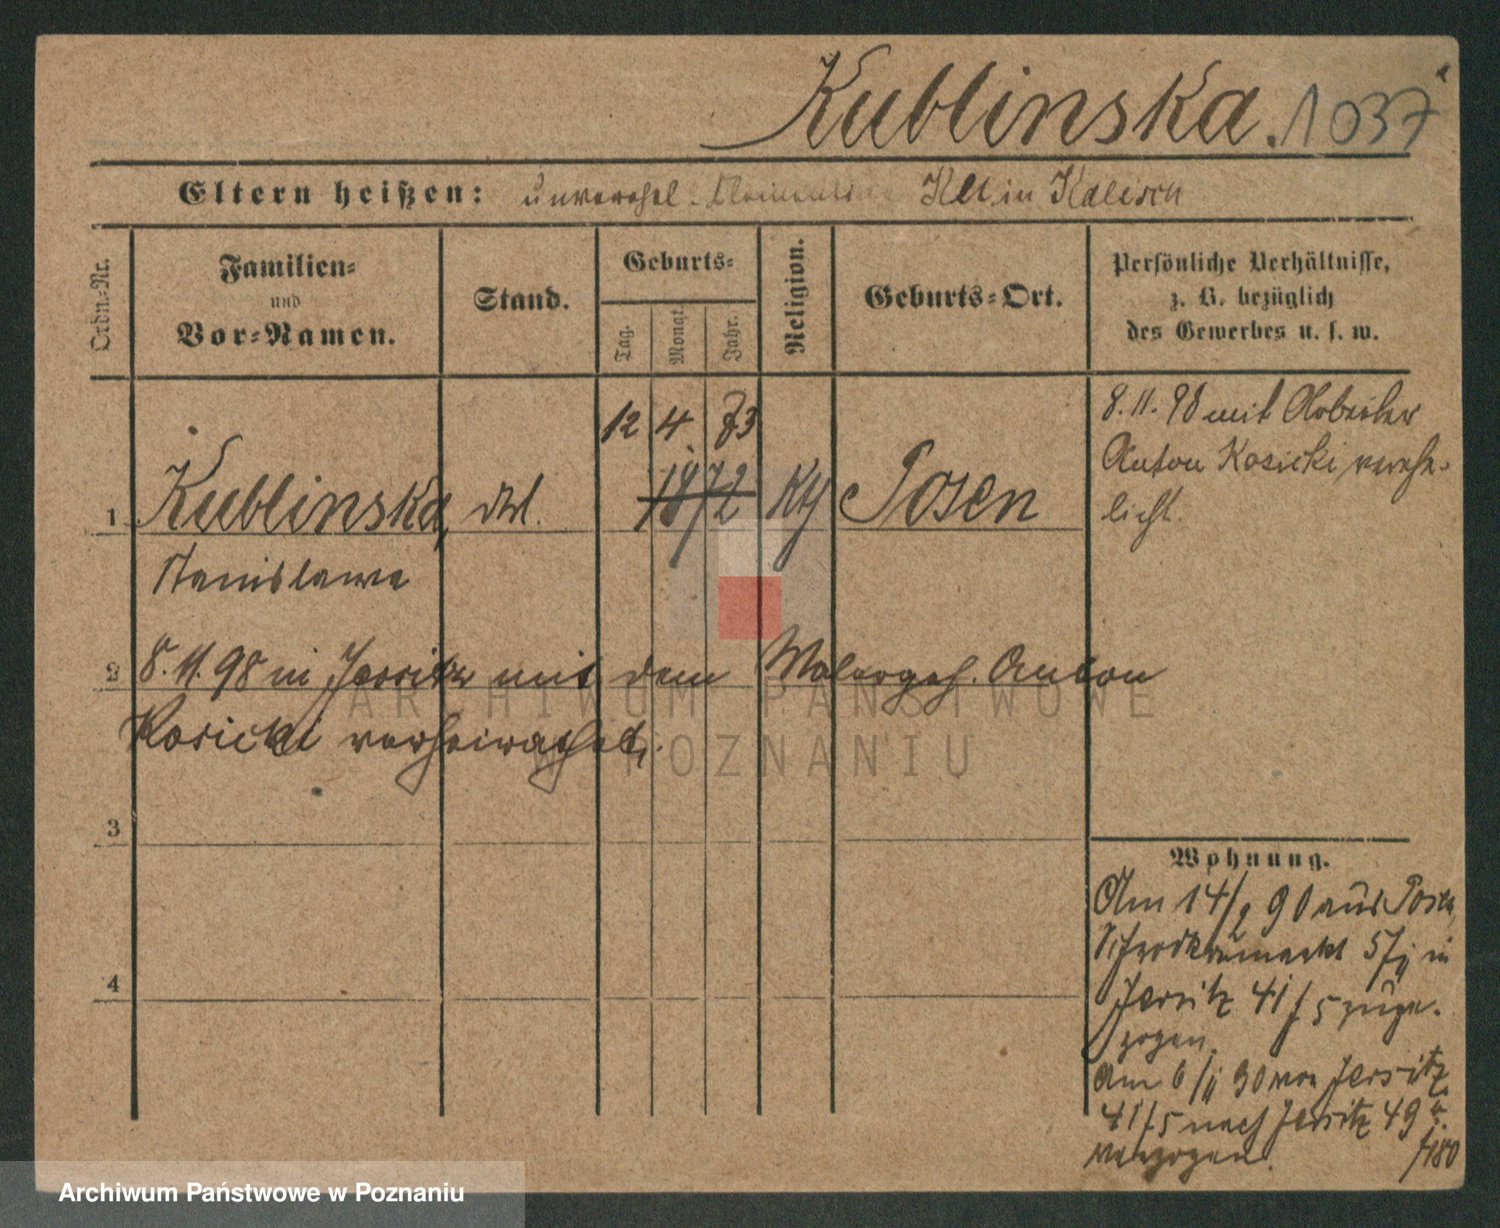 Kublinska. 1037
Eltern heißen: unverehel. Klt. in Kalisch
Ordn.-Nr.
Familien-
und
Vor-Namen.
Stand.
Geburts-
Tag.
Monat.
Jahr.
Religion.
Geburts-Ort.
Persönliche Verhältnisse,
z. B. bezüglich
des Gewerbes u. s. w.
12 4. 73
1 Kublinska, 1872 Posen
Stanislawa
8.11.98 mit Arbeiter
Anton Kosicki, verehe-
licht.
2 8.11.98 in Jersitz mit dem Malergeh. Anton
Kosicki verheirathet.
3
4
Wohnung.
Am 14/2 90 aus Posen
in
Jersitz 41/5 zuge-
zogen.
Am 6/11 90 von Jersitz
41/5 nach Jersitz 49
verzogen. /180
ARCHIWUM PAŃSTWOWE
W POZNANIU
Archiwum Państwowe w Poznaniu